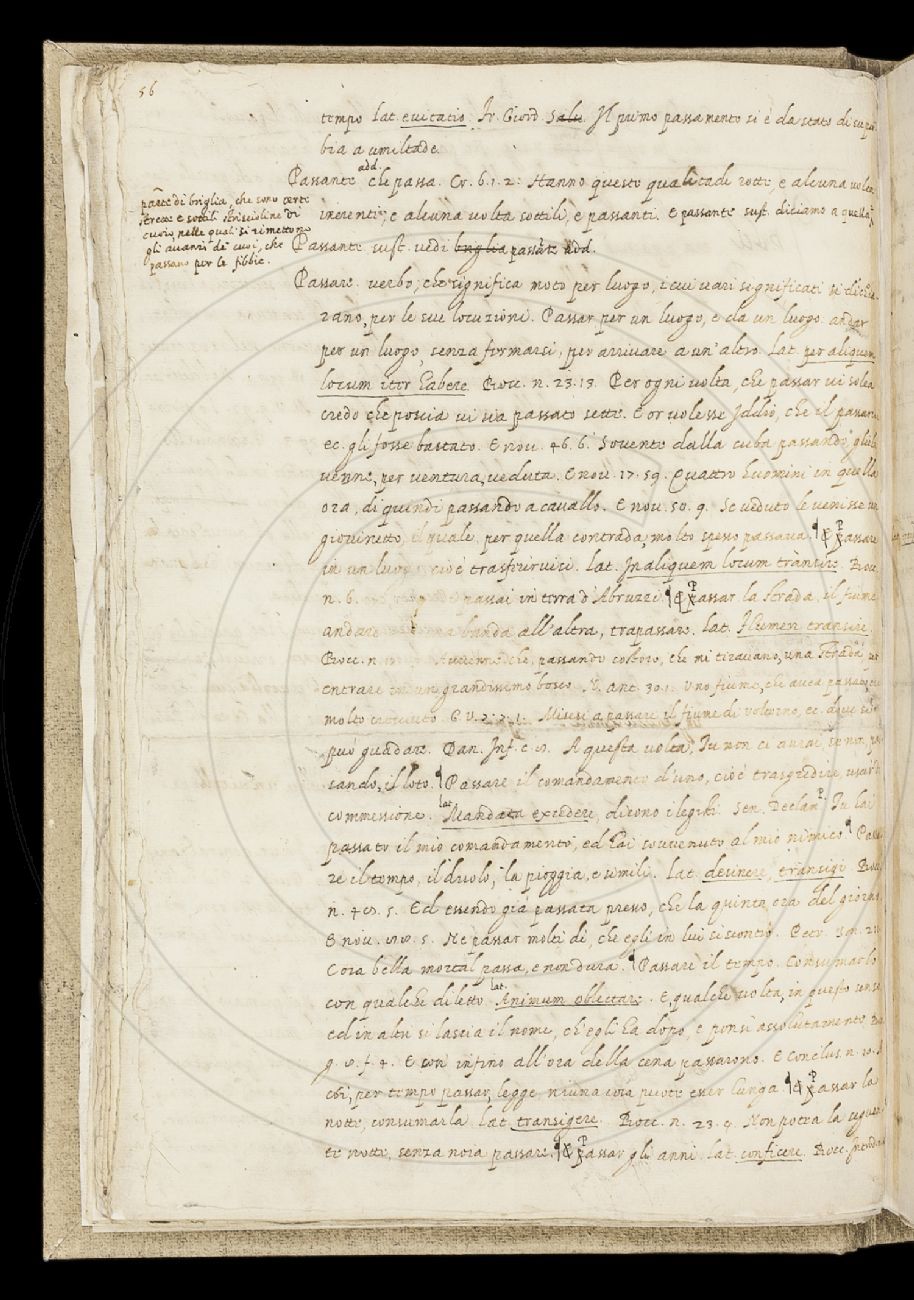 56
tempo lat. evitatio. Fr. Giord. Salu. Il primo passamento si è da stato di super
bia a umiltade.
Passante add. che passa. Cr. 6. 1. 2: Hanno queste qualitadi rotte, e alcuna volta
inerenti, e alcuna volta sottili, e passanti. E passante sust. diciamo a quella
parte di briglia, che sono certe
strette e sottili striscioline di
cuoio, nelle quali si rimettono
gli avanzi de cuoi, che
passano per le fibbie.
Passante sust. vedi briglia passante add.
Passare. verbo, che significa moto per luogo, i cui vari significati si dichia
rano, per le sue locuzioni. Passar per un luogo, e da un luogo. andar
per un luogo, senza fermarsi, per arrivare a un'altro. Lat. per aliquem
locum iter habere. Bocc. n. 23. 13. Per ogni volta, che passar vi solea
credo che poscia vi sia passato sette. E or volesse Iddio, che il passarvi
ec. gli fosse bastato. E nov. 46. 6. Sovente dalla cuba passando, gliele
venne, per ventura, veduta. E nov. 17. 59. Quattro huomini in quella
ora, di quindi passando a cavallo. E nov. 50. 9. Se veduto le venisse un
giovinetto, il quale, per quella contrada, molto spesso passava. ¶ Passare
in un luogo cioè trasferirvici. Lat. In aliquem locum transire. Bocc.
n. 6. passai in terra d'Abruzzi ¶ Passar la strada, il fiume
andare banda all'altra, trapassare. Lat. Flumen transire
Bocc. n. Avvenne che, passando costoro, che mi tiravano, una strada per
entrare in un grandissimo bosco N. ant. 30. 1. Uno fiume, che avea passato, era
molto cresciuto. G. V. Misesi a passare il fiume di volturno, ec. dove si
può guadare. Dan. Inf. c. 8. A questa volta, Tu non ci avrai se non pas
sando, il loto. ¶ Passare il comandamento d'uno, cioè trasgredire, uscir di
commessione. lat. Mandata excedere, dicono i legisti. Sen. Declam. P. Tu hai
passato il mio comandamento, ed hai sovvenuto al mio nimico ¶ Passa
re il tempo, il duolo, la pioggia, e simili. Lat. desinere, transigi Bocc.
n. 48. 5. Ed essendo già passata presso, che la quinta ora del giorno.
E nov. 88. 5. Nè passar molti dì, che egli in lui si scontrò. Petr. Son. 21
Cosa bella mortal passa, e non dura. ¶ Passare il tempo. Consumarlo
con qualche diletto. lat. Animum oblectare. E, qualche volta, in questo senso
ed in altri si lascia il nome, ch'egli ha dopo, e ponsi assolutamente Bo
g. 8. f. 4. E così infino all'ora della cena passarono. E conclus. n. 10. A
chi, per tempo passar, legge, niuna cosa puote esser lunga ¶ Passar la
notte, consumarla lat. transigere. Bocc. n. 23. 9. Non potea la seguen
te notte, senza noia passare. ¶ Passar gli anni lat. conficere. Bocc. Introd.